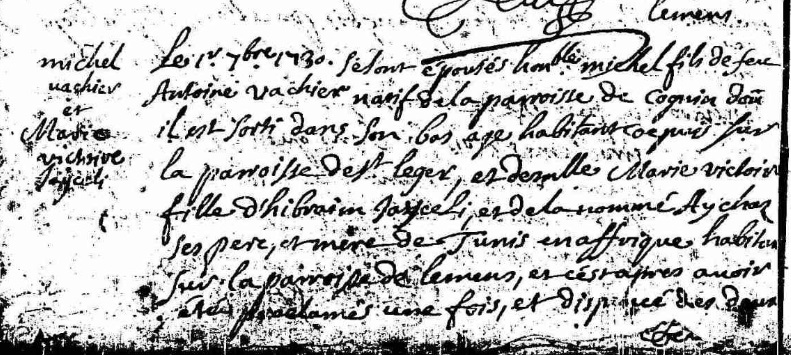 lemens.
michel
vachier
et
Marie
victoire
Jayceli
Le 1r. 7bre 1730. se sont épousés honble michel fili de feu
Antoine vachier natif de la parroisse de cognin doū
il est sorti dans son bas age habitant depuis sur
la parroisse de st leger, et demlle Marie victoire
fille d'hibraim Jayceli, et de la nommé Aychas
ses pere, et mere de Tunis en affrique habitan
sur la parroisse de lemens, et ces apres avoir
été proclamés une fois, et dispencé des deux